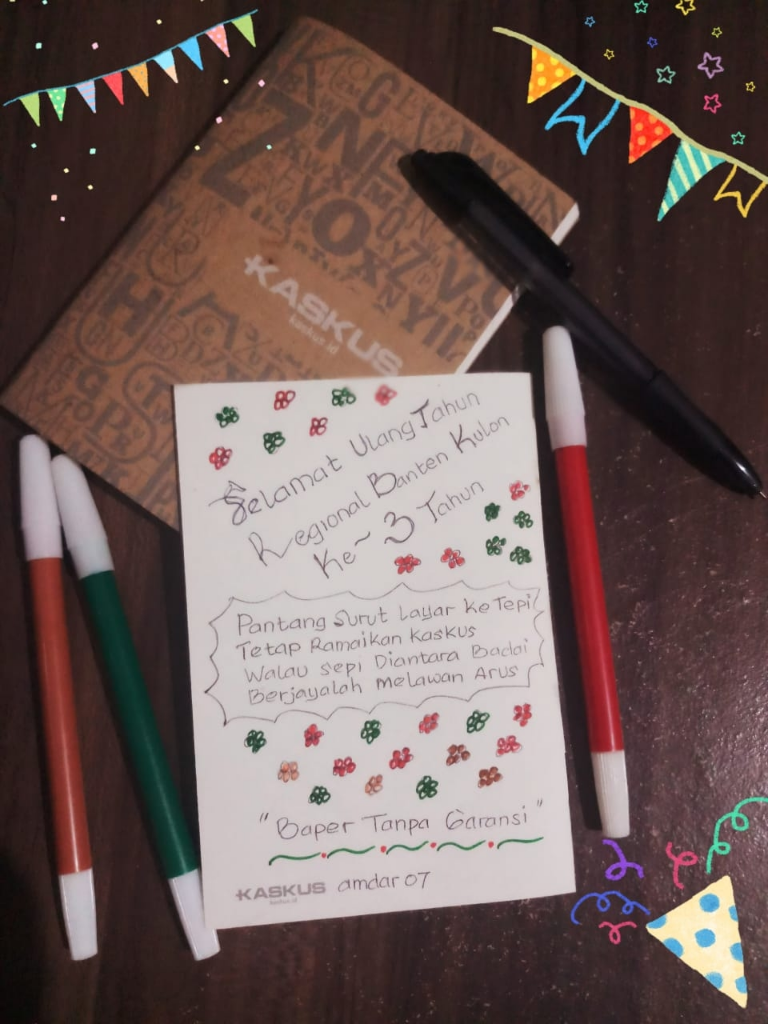 KASKUS
kaskus.id
Selamat Ulang Tahun
Regional Banten Kulon
Ke~ 3 Tahun
Pantang Surut Layar ke Tepi
Tetap Ramaikan Kaskus
Walau Sepi Diantara Badai
Berjayalah Melawan Arus
"Baper Tanpa Garansi"
KASKUS amdar 07
kaskus.id